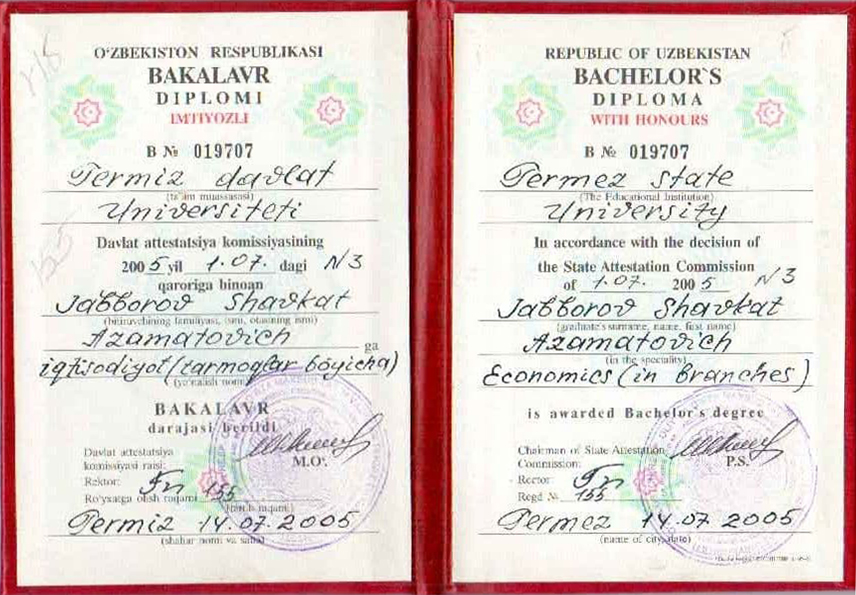 O‘ZBEKISTON RESPUBLIKASI
BAKALAVR
DIPLOMI
IMTIYOZLI
B № 019707
Termiz davlat
(ta'lim muassasasi)
Universiteti
Davlat attestatsiya komissiyasining
2005 yil 1.07. dagi N3
qaroriga binoan
Jabborov Shavkat
(bitiruvchining familiyasi, ismi, otasining ismi)
Azamatovich ga
iqtisodiyot (tarmoqlar bòyicha)
(yo'nalish nomi)
BAKALAVR
darajasi berildi
Davlat attestatsiya
komissiyasi raisi:
M.O‘.
Rektor:
Ro'yxatga olish raqami 155
Termiz 14.07.2005
(shahar nomi va sana)
REPUBLIC OF UZBEKISTAN
BACHELOR`S
DIPLOMA
WITH HONOURS
B № 019707
Termez state
(The Educational Institution)
University
In accordance with the decision of
the State Attestation Commission
of 1.07. 2005 N3
Jabborov Shavkat
(graduate's surname, name, first name)
Azamatovich
(in the speciality)
Economics (in branches)
is awarded Bachelor's degree
Chairman of State Attestation
Commission:
P.S.
Rector
Regd №. 155
Termez 14.07 2005
(name of city, date)